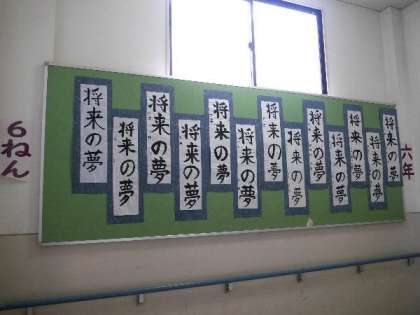 6ねん
将来の夢
将来の夢
将来の夢
将来の夢
将来の夢
将来の夢
将来の夢
将来の夢
将来の夢
将来の夢
将来の夢
将来の夢
将来の夢
六年